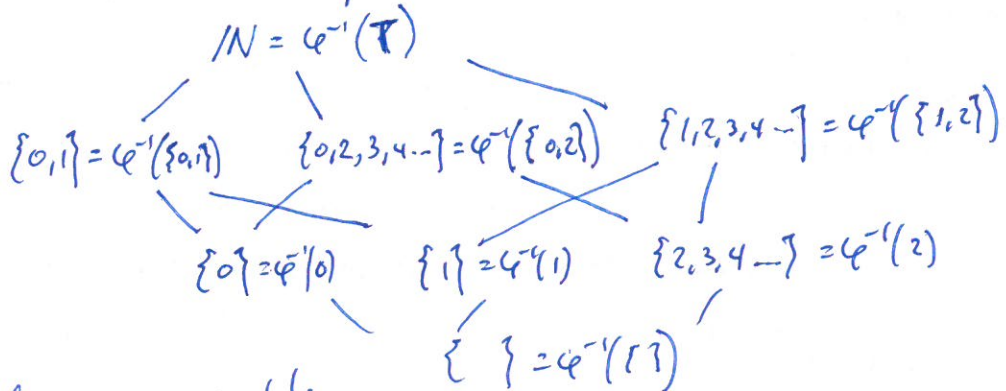 ℕ = φ⁻¹(T)
{0,1} = φ⁻¹({0,1}) {0,2,3,4...} = φ⁻¹({0,2}) {1,2,3,4...} = φ⁻¹({1,2})
{0} = φ⁻¹(0) {1} = φ⁻¹(1) {2,3,4...} = φ⁻¹(2)
{ } = φ⁻¹({ })